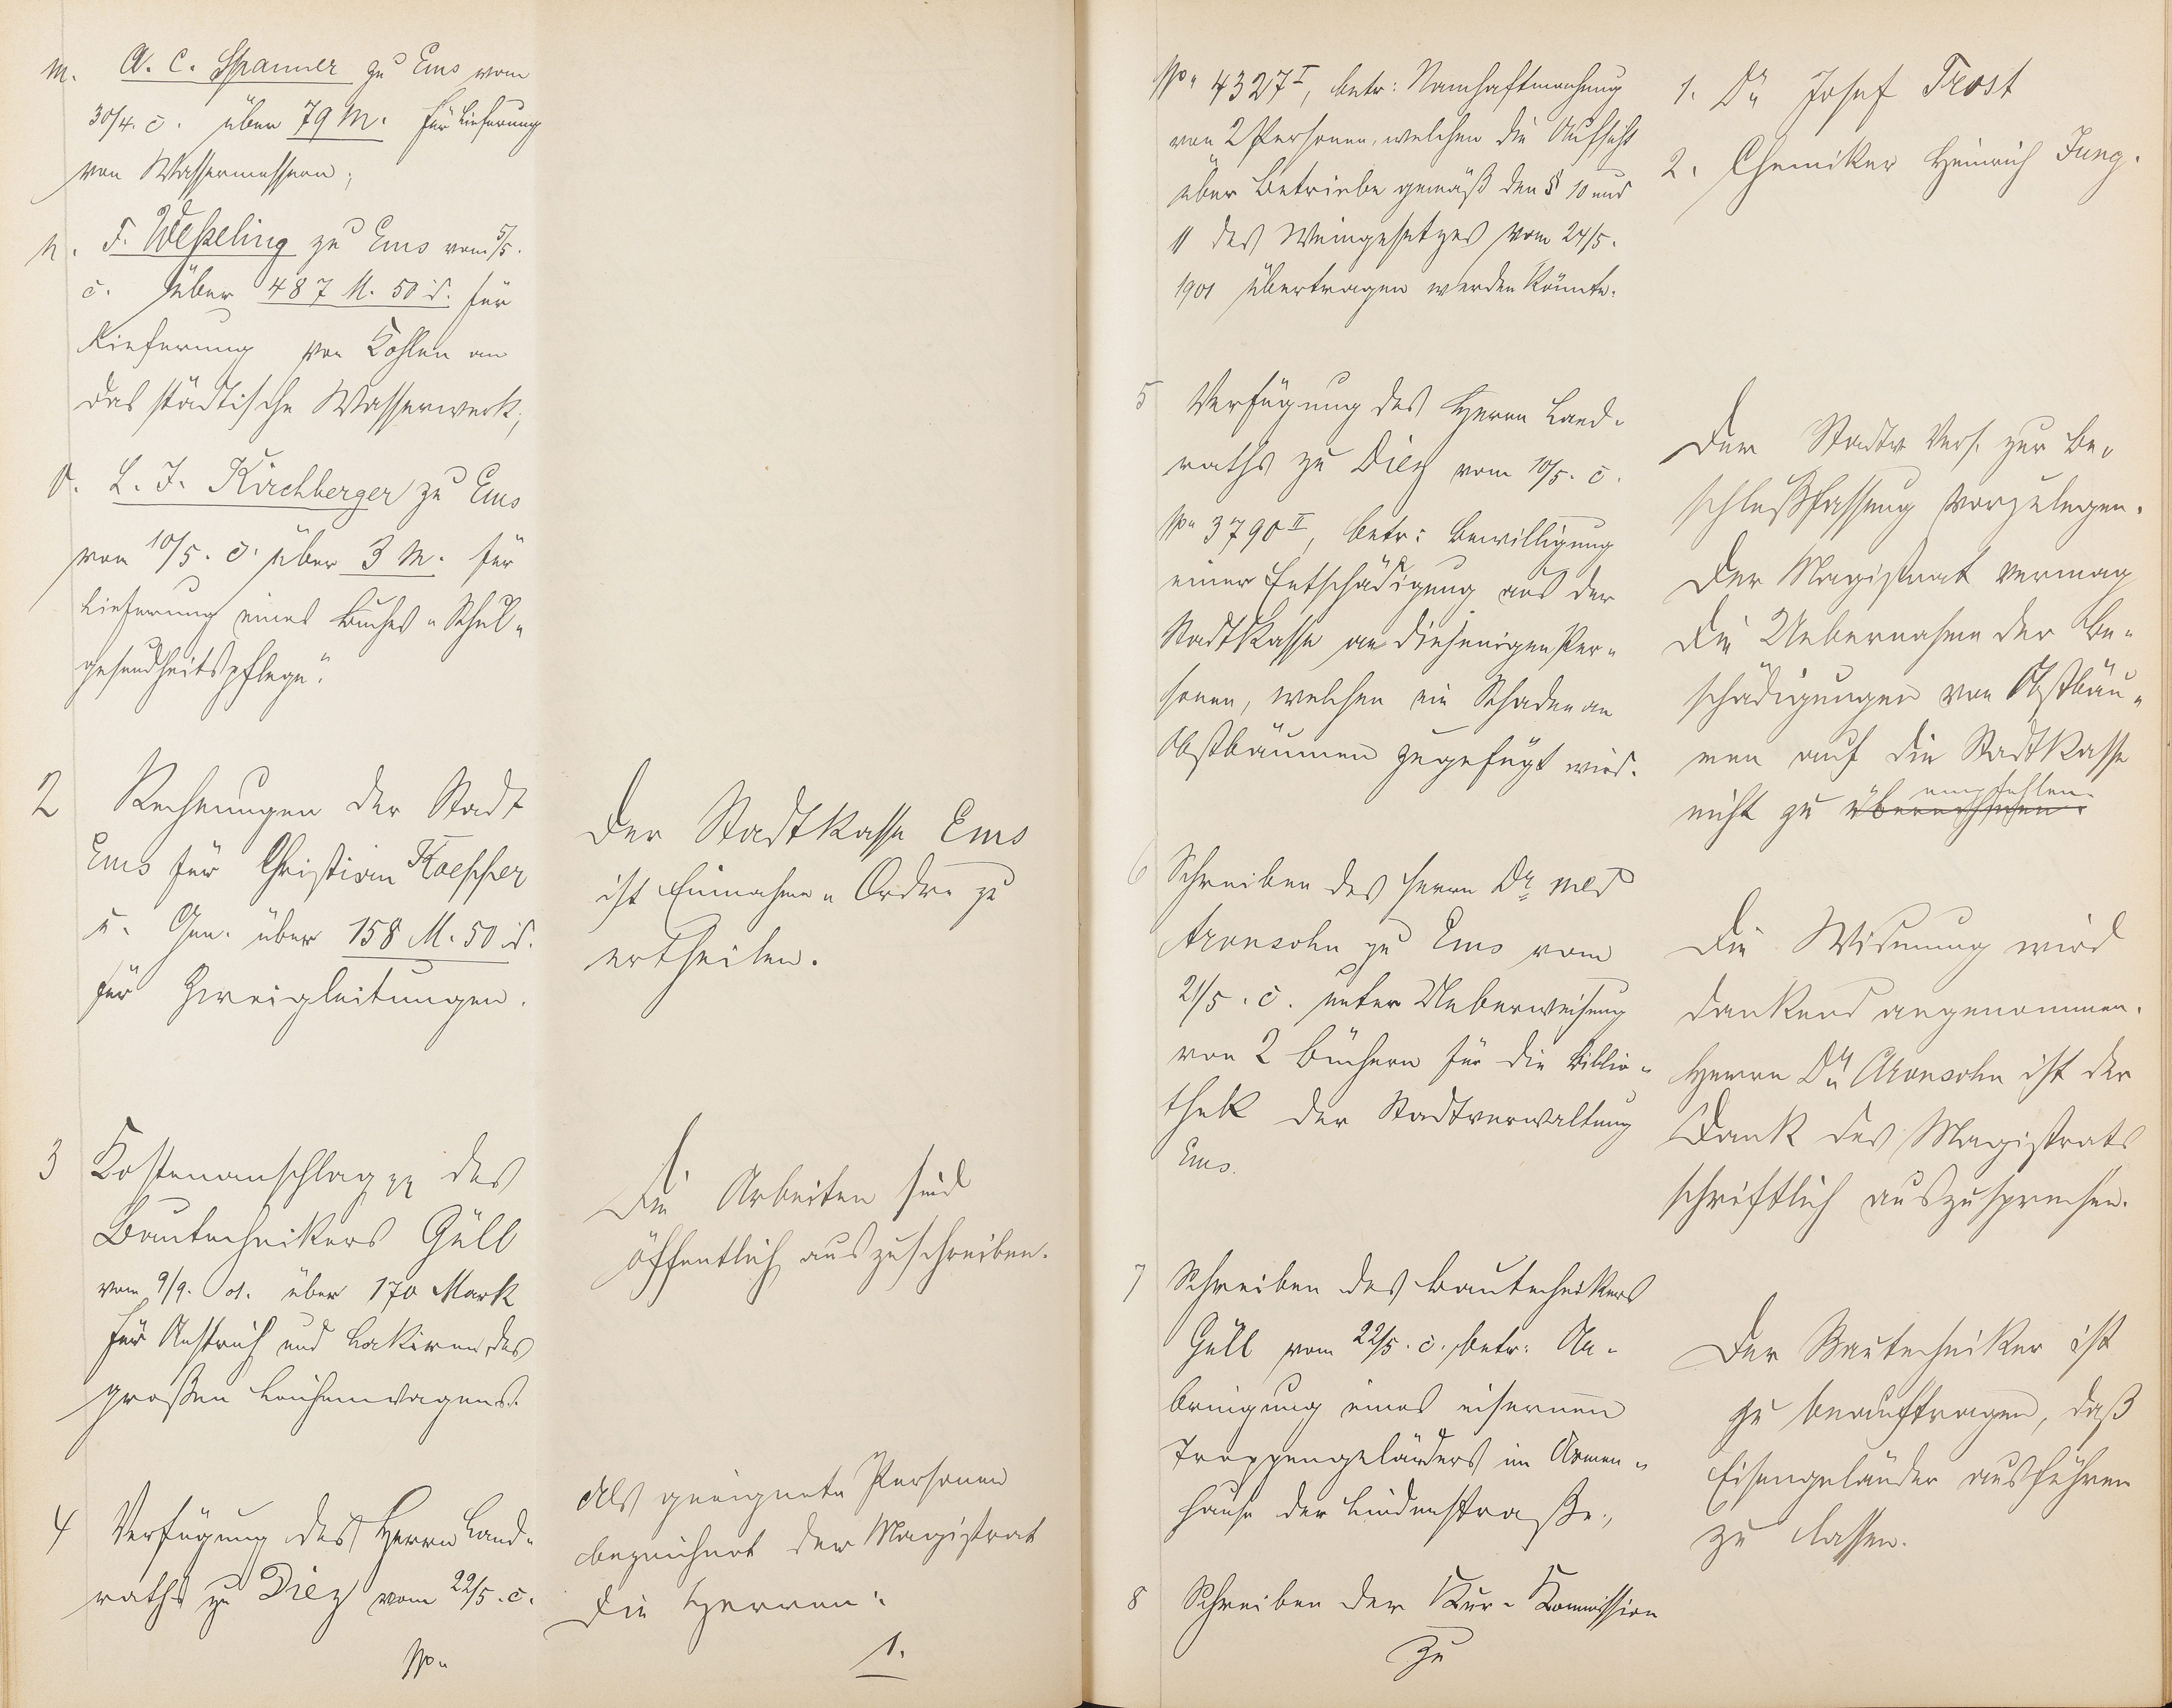 m. A. C. Spanner zu Ems vom
30/4. c. über 79 M. für Lieferung
von Wassermessern;
n. F. Weßeling zu Ems vom 5/5.
c. über 487 M. 50 d. für
Lieferung von Kohlen an
das städtische Wasserwerk;
o. L. J. Kirchberger zu Ems
vom 10/5. c. über 3 M. für
Lieferung eines Buches "Schul-
gesundheitspflege".
2 Rechnungen der Stadt
Ems für Christian Kaeppler
u. Gen. über 158 M. 50 d.
für Zweigleitungen.
Der Stadtkasse Ems
ist Einnahme-Ordre zu
ertheilen.
3 Kostenanschlag des
Bautechnikers Güll
vom 9/9. 01. über 170 Mark
für Anstrich und Lakiren des
großen Leichenwagens.
Die Arbeiten sind
öffentlich auszuschreiben.
4 Verfügung des Herrn Land-
raths zu Diez vom 22/5. c.
No.
Als geeignete Personen
bezeichnet der Magistrat
die Herren:
1.
No. 4327 I, betr: Namhaftmachung
von 2 Personen, welchen die Aufsicht
über Betriebe gemäß den § 10 und
11 des Weingesetzes vom 24/5.
1901 übertragen werden könnte.
1. Dr. Josef Trost
2. Chemiker Heinrich Jung.
5 Verfügung des Herrn Land-
raths zu Diez vom 10/5. c.
No. 3790 II, betr: Bewilligung
einer Entschädigung aus der
Stadtkasse an diejenigen Per-
sonen, welchen ein Schaden an
Obstbäumen zugefügt wird.
Der Stadtv. Vers. zur Be-
schlußfassung vorzulegen.
Der Magistrat vermag
die Uebernahme der Be-
schädigungen von Obstbäu-
men auf die Stadtkasse
empfehlen.
nicht zu übernehmen.
6 Schreiben des Herrn Dr. med
Aronsohn zu Ems vom
21/5. c. unter Ueberweisung
von 2 Büchern für die Biblio-
thek der Stadtverwaltung
Ems.
Die Widmung wird
dankend angenommen.
Herrn Dr. Aronsohn ist der
Dank des Magistrats
schriftlich auszusprechen.
7 Schreiben des Bautechnikers
Güll vom 22/5. c., betr: An-
bringung eines eisernen
Treppengeländers im Armen-
hause der Lindenstraße.
Der Bautechniker ist
zu beauftragen, daß
Eisengeländer ausführen
zu lassen.
8 Schreiben der Kur-Kommission
zu